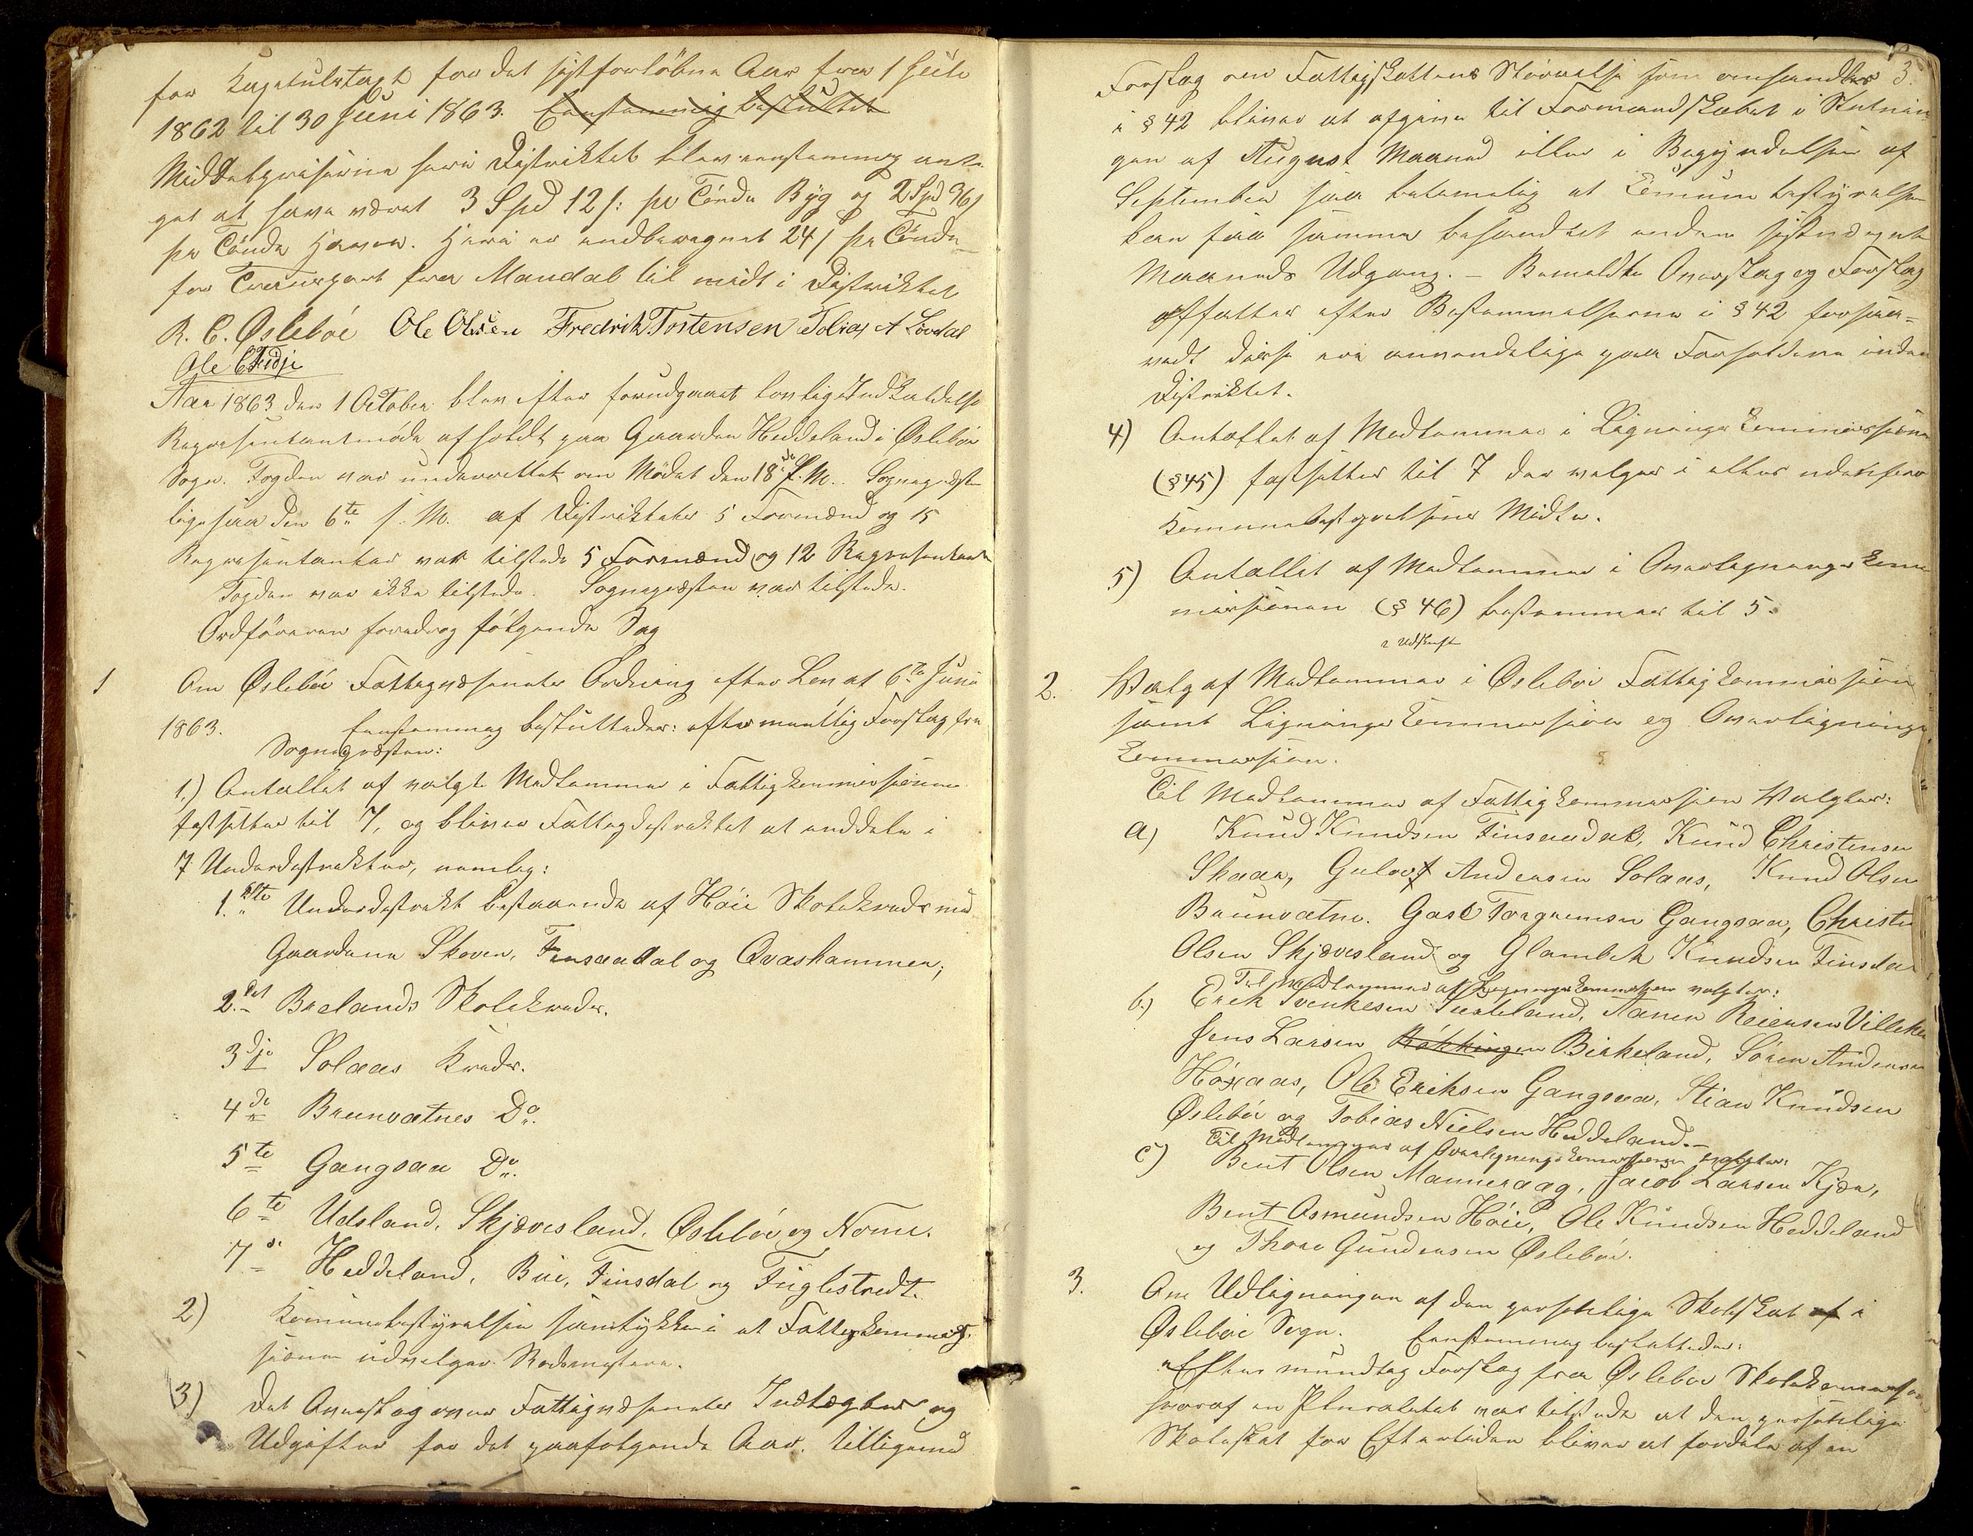 for Kapitulstaxt for det sistforløbne Aar fra 1 Juli
1862 til 30 Juni 1863. Eenstemmig besluttet
Middelpriserne heri Distriktet blev eenstemmig anta-
get at have været 3 Spd 12 s: pr Tønde Byg og 2 Spd 36 s
pr Tønde Havre. Heri er indberegnet 24 s pr Tønde
for Transport fra Mandal til midt i Distriktet
R. C. Øslebøe Ole Olsen Fredrik Tostensen Tobias A Løvdal
Ole C Tredje
Aar 1863 den 1 October blev efter forudgaaet lovlig Indkaldelse
Repræsentantmøde afholdt paa Gaarden Heddeland i Øslebøe
Sogn. Fogden var underrettet om Mødet den 18de f. M. Sognepræsten
ligesaa den 6te s. M. af Distriktets 5 Formænd og 15
Repræsentanter var tilstede 5 Formænd og 12 Repræsentant
Fogden var ikke tilstede. Sognepræsten var tilstede.
Ordføreren foredrog følgende Sag
1 Om Øslebøe Fattigvæsenets Ordning efter Lov af 6te Juni
1863. Eenstemmig besluttedes: efter mundtlig Forslag fra
Sognepræsten:
1.) Antallet af valgte Medlemmer i Fattigkommissionen
fastsættes til 7, og bliver Fattigdistriktet at inddele i
7 Underdistrikter, nemlig:
1.ste Underdistrikt bestaaende af Høie Skolekreds med
Gaardene Skoven, Finsaadal og Qvashammer;
2.det Brelands Skolekreds.
3dje Solaas Kreds.
4de Brunvatnes Do.
5te Gangsaa Do.
6te Udsland, Skjævesland, Øslebøe og Nome.
7de Heddeland, Bue, Finsdal og Fuglestvedt.
2) Kommunebestyrelsen samtykker i at Fattigkommis-
sionen udvælger Rodemestere.
3) Det Overslag over Fattigvæsenets Indtægter og
Udgifter for det paafølgende Aar. tilligemed
3
Forslag om Fattigskattens Størrelse som omhandles
i § 42 bliver at afgive til Formandskabet i Slutnin
gen af August Maaned eller i Begyndelsen af
September saa betimelig at Communebestyrelsen
kan faa samme behandlet inden sidstnævnte
Maaneds Udgang. - Bemeldte Overslag og Forslag
affattes efter Bestemmelserne i § 42 forsaa-
vidt disse ere anvendelige paa Forholdene inden
Distriktet.
4) Antallet af Medlemmer i Ligningskommissionen
(§ 45) fastsættes til 7 der vælges i eller udenfor
Kommunebestyrelsens Midte.
5) Antallet af Medlemmer i Overligningskom
missionen (§ 46) bestemmes til 5.
Udskrift
2. Valg af Medlemmer i Øslebøe Fattigkommission
samt Ligningskommission og Overlignings
kommission.
Til Medlemmer af Fattigkommission valgtes:
a) Knud Knudsen Finsaadal, Knud Christensen
Skaar, Gulov Andersen Solaas, Knud Olsen
Brunvatne. Gast Torgrimsen Gangsaa, Christen
Olsen Skjævesland og Glambek Knudsen Finsdal
Til Medlemmer af Ligningskommission valgtes:
b.) Erik Svenkesen Tveteland, Aanen Reiersen Villeken
Jens Larsen Birkeland, Søren Andersen
Høyaas, Ole Eriksen Gangsaa, Stian Knudsen
Øslebøe og Tobias Nielsen Heddeland. -
Til Medlemmer af Overligningskommission valgtes:
c) Bent Olsen Mannevaag, Jacob Larsen Kjær,
Bent Osmundsen Høie, Ole Knudsen Heddeland
og Thore Gundersen Øslebøe.
3. Om Udligningen af den personlige Skoleskat af i
Øslebøe Sogn. Eenstemmig besluttedes:
Efter mundtlig Forslag fra Øslebøe Skolekommission
hvoraf en Pluralitet var tilstede at den personlige
Skoleskat for Eftertiden bliver at fordele af en